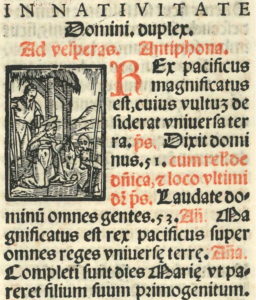 IN NATIVITATE
Domini. duplex.
Ad vesperas. Antiphona.
REx pacificus
magnificatus
est, cuius vultuȝ de
siderat vniuersa ter
ra. p̃s. Dixit domi
nus. 51. cum rel. de
dñica, ⁊ loco vltimi
dr̃ p̃s. Laudate do-
minũ omnes gentes. 53. Añ. Ma
gnificatus est rex pacificus super
omnes reges vniuersę terrę. Aña.
Completi sunt dies Marię vt pa-
reret filium suum primogenitum.